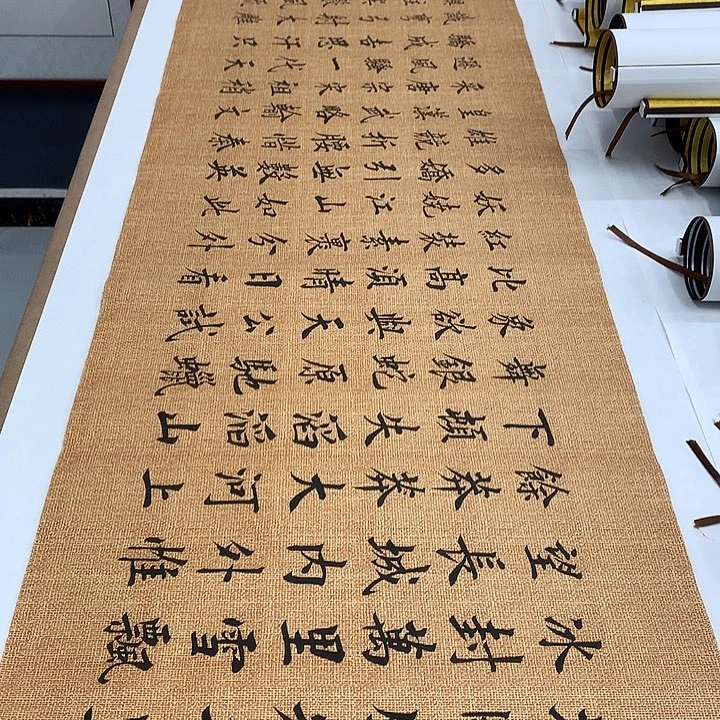 冰封萬里雪飄
望長城内外惟
餘莽莽大河上
下頓失滔滔山
舞銀蛇原馳蠟
象欲與天公試
比高須晴日看
紅裝素裹分外
妖嬈江山如此
多嬌引無數英
雄競折腰惜秦
皇漢武略輸文
采唐宗宋祖稍
遜風騷一代天
驕成吉思汗只
識彎弓射大雕